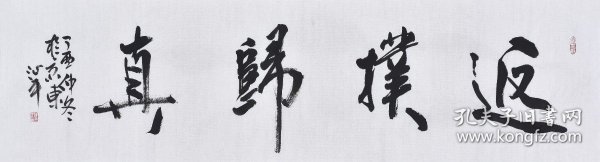 返撲歸真
丁酉仲冬
於京東
孔夫子旧书网
www.kongfz.com